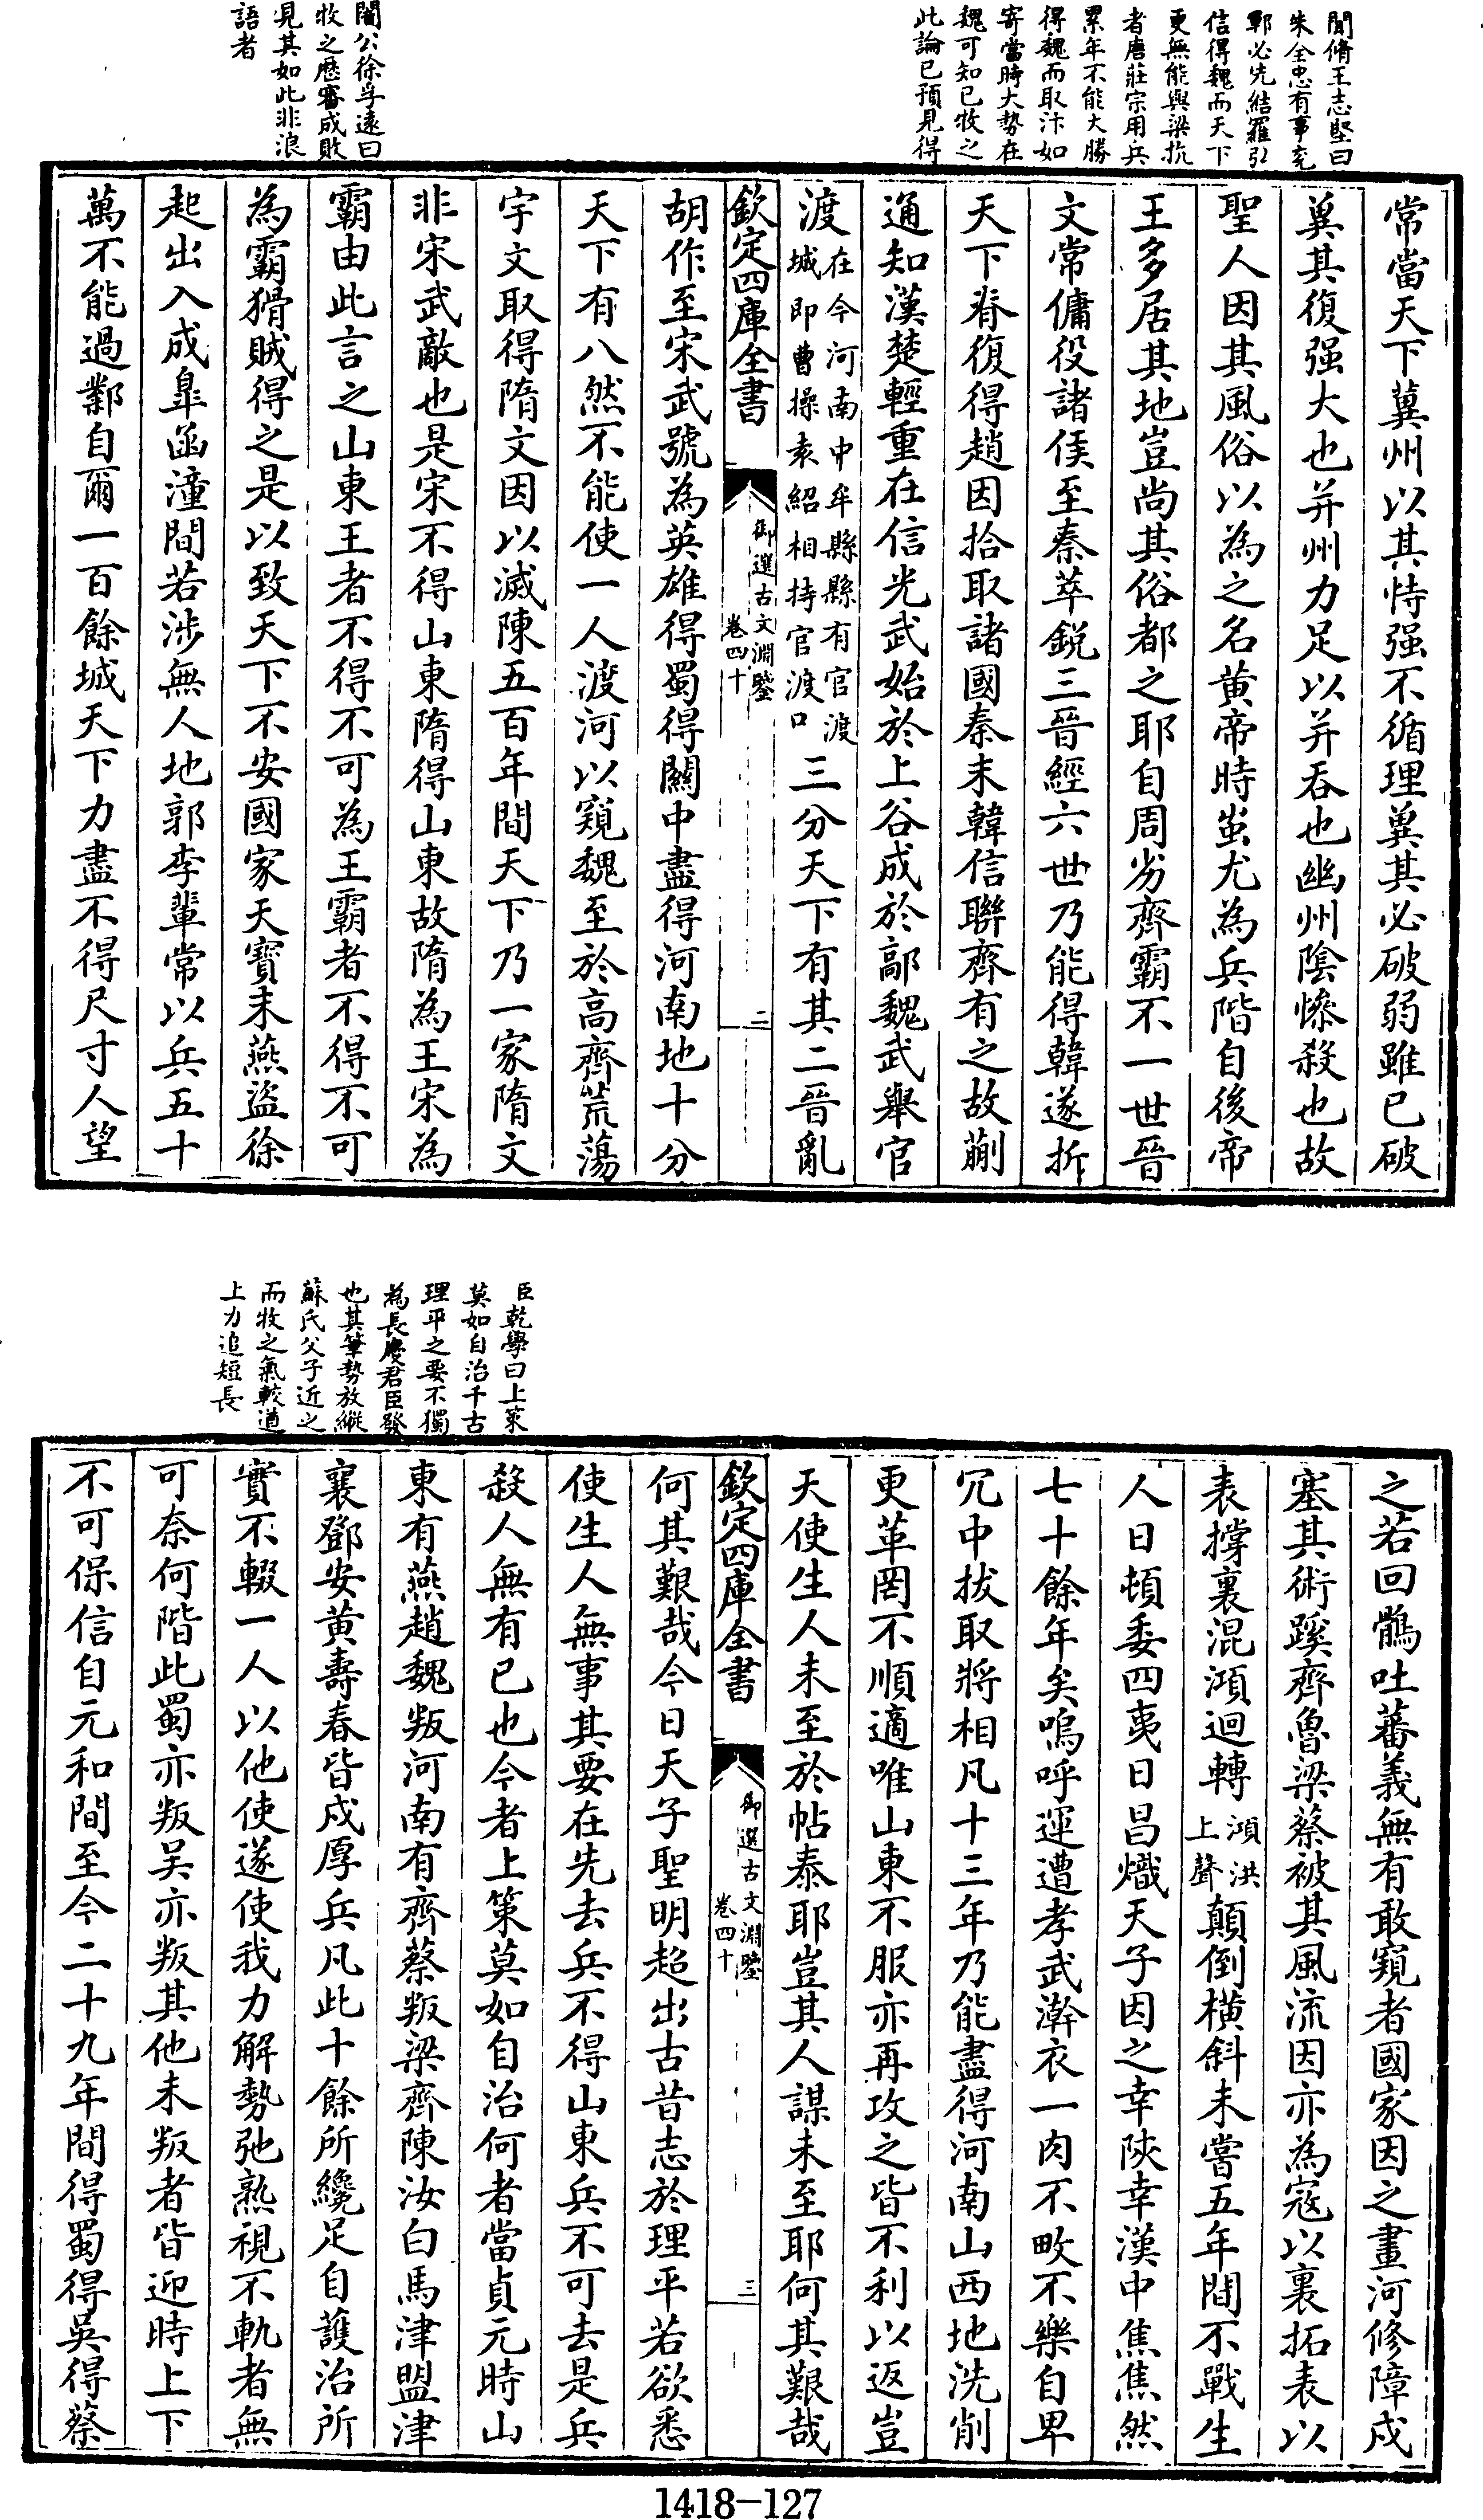 聞脩王志堅曰
朱全忠有事兖
鄆必先結羅弘
信得魏而天下
更無能與梁抗
者唐莊宗用兵
累年不能大勝
得魏而取汴如
寄當時大勢在
魏可知已牧之
此論已預見得
闇公徐孚遠曰
牧之歷審成敗
見其如此非浪
語者
常當天下冀州以其恃强不循理冀其必破弱雖已破
冀其復强大也并州力足以并吞也幽州陰慘殺也故
聖人因其風俗以為之名黄帝時蚩尤為兵階自後帝
王多居其地豈尚其俗都之耶自周劣齊霸不一世晉
文常傭役諸侯至秦萃鋭三晉經六世乃能得韓遂折
天下脊復得趙因拾取諸國秦末韓信聯齊有之故蒯
通知漢楚輕重在信光武始於上谷成於鄗魏武舉官
渡在今河南中牟縣縣有官渡城即曹操袁紹相持官渡口三分天下有其二晉亂
欽定四庫全書
御選古文淵鑒
卷四十
二
胡作至宋武號為英雄得蜀得關中盡得河南地十分
天下有八然不能使一人渡河以窺魏至於高齊荒蕩
宇文取得隋文因以滅陳五百年間天下乃一家隋文
非宋武敵也是宋不得山東隋得山東故隋為王宋為
霸由此言之山東王者不得不可為王霸者不得不可
為霸猾賊得之是以致天下不安國家天寳末燕盜徐
起出入成臯函潼間若涉無人地郭李輩常以兵五十
萬不能過鄴自爾一百餘城天下力盡不得尺寸人望
臣乾學曰上策
莫如自治千古
理平之要不獨
為長慶君臣發
也其筆勢放縱
蘇氏父子近之
而牧之氣較遒
上力追短長
之若回鶻吐蕃義無有敢窺者國家因之畫河修障戍
塞其術蹊齊魯梁蔡被其風流因亦為寇以裏拓表以
表撐裏混澒迴轉澒洪上聲顛倒横斜未嘗五年間不戰生
人日頓委四夷日昌熾天子因之幸陜幸漢中焦焦然
七十餘年矣嗚呼運遭孝武澣衣一肉不畋不樂自卑
冗中拔取將相凡十三年乃能盡得河南山西地洗削
更革罔不順適唯山東不服亦再攻之皆不利以返豈
天使生人未至於帖泰耶豈其人謀未至耶何其艱哉
欽定四庫全書
御選古文淵鑒
卷四十
三
何其艱哉今日天子聖明超出古昔志於理平若欲悉
使生人無事其要在先去兵不得山東兵不可去是兵
殺人無有已也今者上策莫如自治何者當貞元時山
東有燕趙魏叛河南有齊蔡叛梁齊陳汝白馬津盟津
襄鄧安黄壽春皆戍厚兵凡此十餘所纔足自護治所
實不輟一人以他使遂使我力解勢弛熟視不軌者無
可奈何階此蜀亦叛吴亦叛其他未叛者皆迎時上下
不可保信自元和間至今二十九年間得蜀得吳得蔡
1418-127